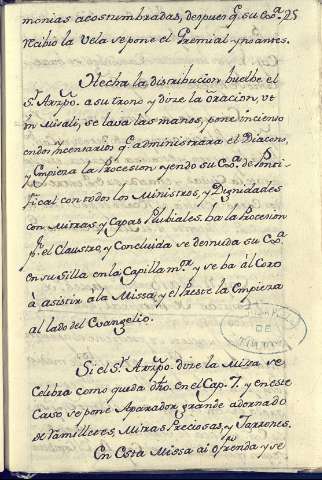 monias acostumbradas, despues q.e su Ex.a 25
recibio la Vela se pone el Gremial, y no antes.
Hecha la distribucion buelbe el
S.r Arzpo. a su trono y dize la oracion, ut
in Misali, se lava las manos, pone incienso
en dos Yncensarios q.e administrara el Diacono,
y Empieza la Procesion yendo su Ex.a de Ponti-
fical con todos los Ministros, y Dignidades
con Mitras y Capas Plubiales. ba la Procesion
p.r el Claustro, y Concluida se desnuda su Ex.a
en su silla en la Capilla m.or y se ba al Coro
à asistir à la Missa, y el Preste la Empieza
al lado del Evangelio.
Si el S.r Arzpo. dize la Missa se
Celebra como queda dho. en el Cap. 7. y en este
Caso se pone Aparador grande adornado
de ramilletes, Mitras Preciosas, y Jarrones.
En Esta Missa ai ofrenda y se